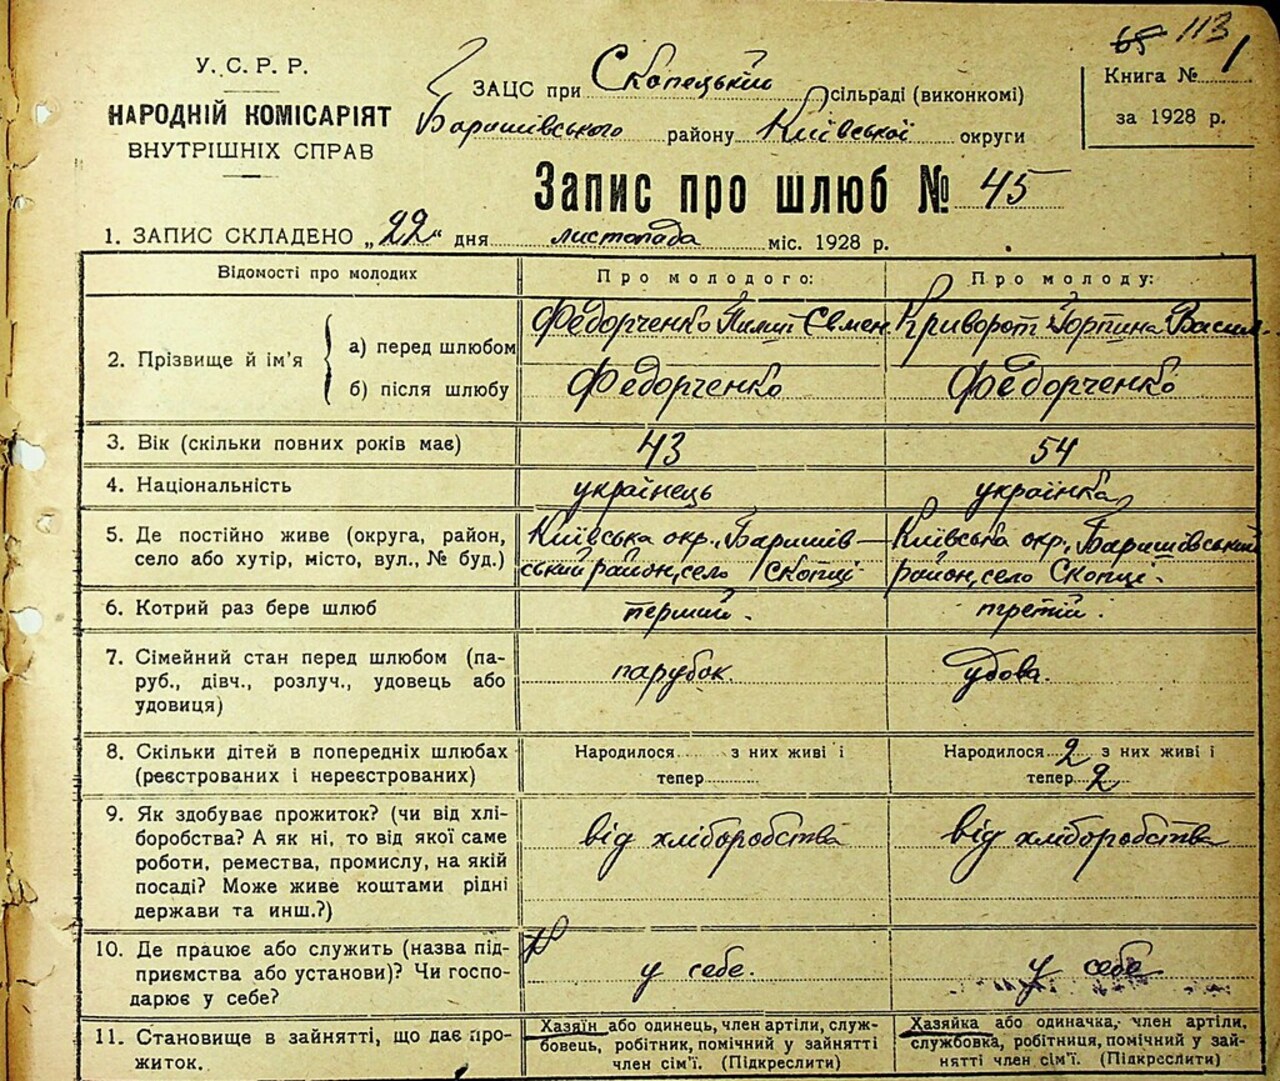 65 113
У. С. Р. Р.
НАРОДНІЙ КОМІСАРІЯТ
ВНУТРІШНІХ СПРАВ
ЗАЦС при Скопецький сільраді (виконкомі)
Баришівського району Київської округи
Книга № 1
за 1928 р.
Запис про шлюб № 45
1. ЗАПИС СКЛАДЕНО „22“ дня листопада міс. 1928 р.
Відомості про молодих
Про молодого:
Про молоду:
2. Прізвище й ім’я
а) перед шлюбом
Федорченко Євмен
Криворот Горпина Васил.
б) після шлюбу
Федорченко
Федорченко
3. Вік (скільки повних років має)
43
54
4. Національність
українець
українка
5. Де постійно живе (округа, район,
село або хутір, місто, вул., № буд.)
Київська окр., Баришів-
ський район, село Скопці
Київська окр., Баришівський
район, село Скопці.
6. Котрий раз бере шлюб
перший.
третій.
7. Сімейний стан перед шлюбом (па-
руб., дівч., розлуч., удовець або
удовиця)
парубок.
удова.
8. Скільки дітей в попередніх шлюбах
(реєстрованих і нереєстрованих)
Народилося...... з них живі і
тепер..........
Народилося 2 з них живі і
тепер 2
9. Як здобуває прожиток? (чи від хлі-
боробства? А як ні, то від якої саме
роботи, ремества, промислу, на якій
посаді? Може живе коштами рідні
держави та инш.?)
від хліборобства
від хліборобства
10. Де працює або служить (назва під-
приємства або установи)? Чи госпо-
дарює у себе?
у себе.
у себе
11. Становище в зайнятті, що дає про-
житок.
Хазяїн або одинець, член артіли, служ-
бовець, робітник, помічний у зайнятті
член сім’ї. (Підкреслити)
Хазяйка або одиначка, член артіли,
службовка, робітниця, помічний у зай-
нятті член сім’ї. (Підкреслити)